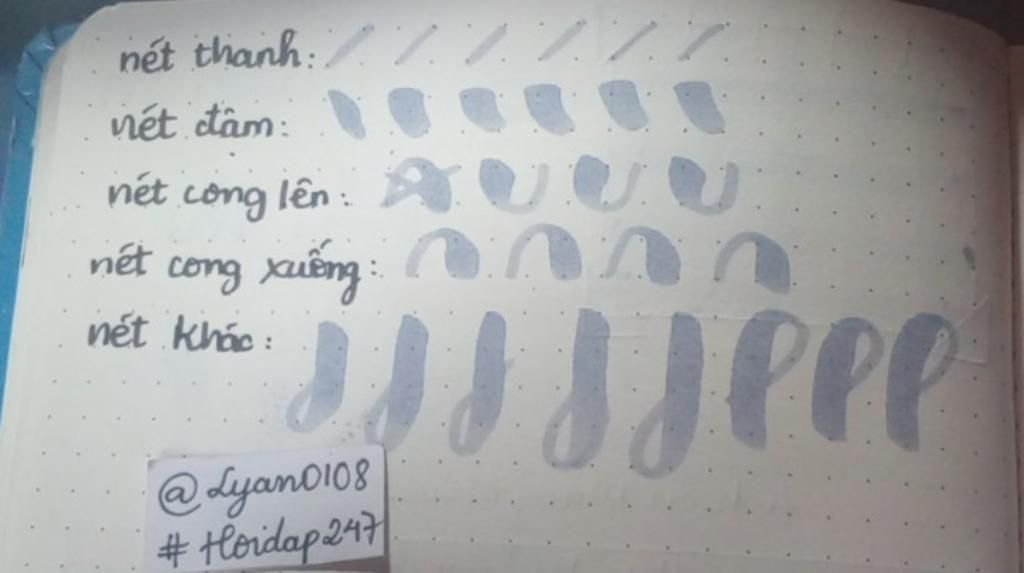 nét thanh:
nét đậm:
nét cong lên:
nét cong xuống:
nét khác:
@Lyan0108
#Hoidap247